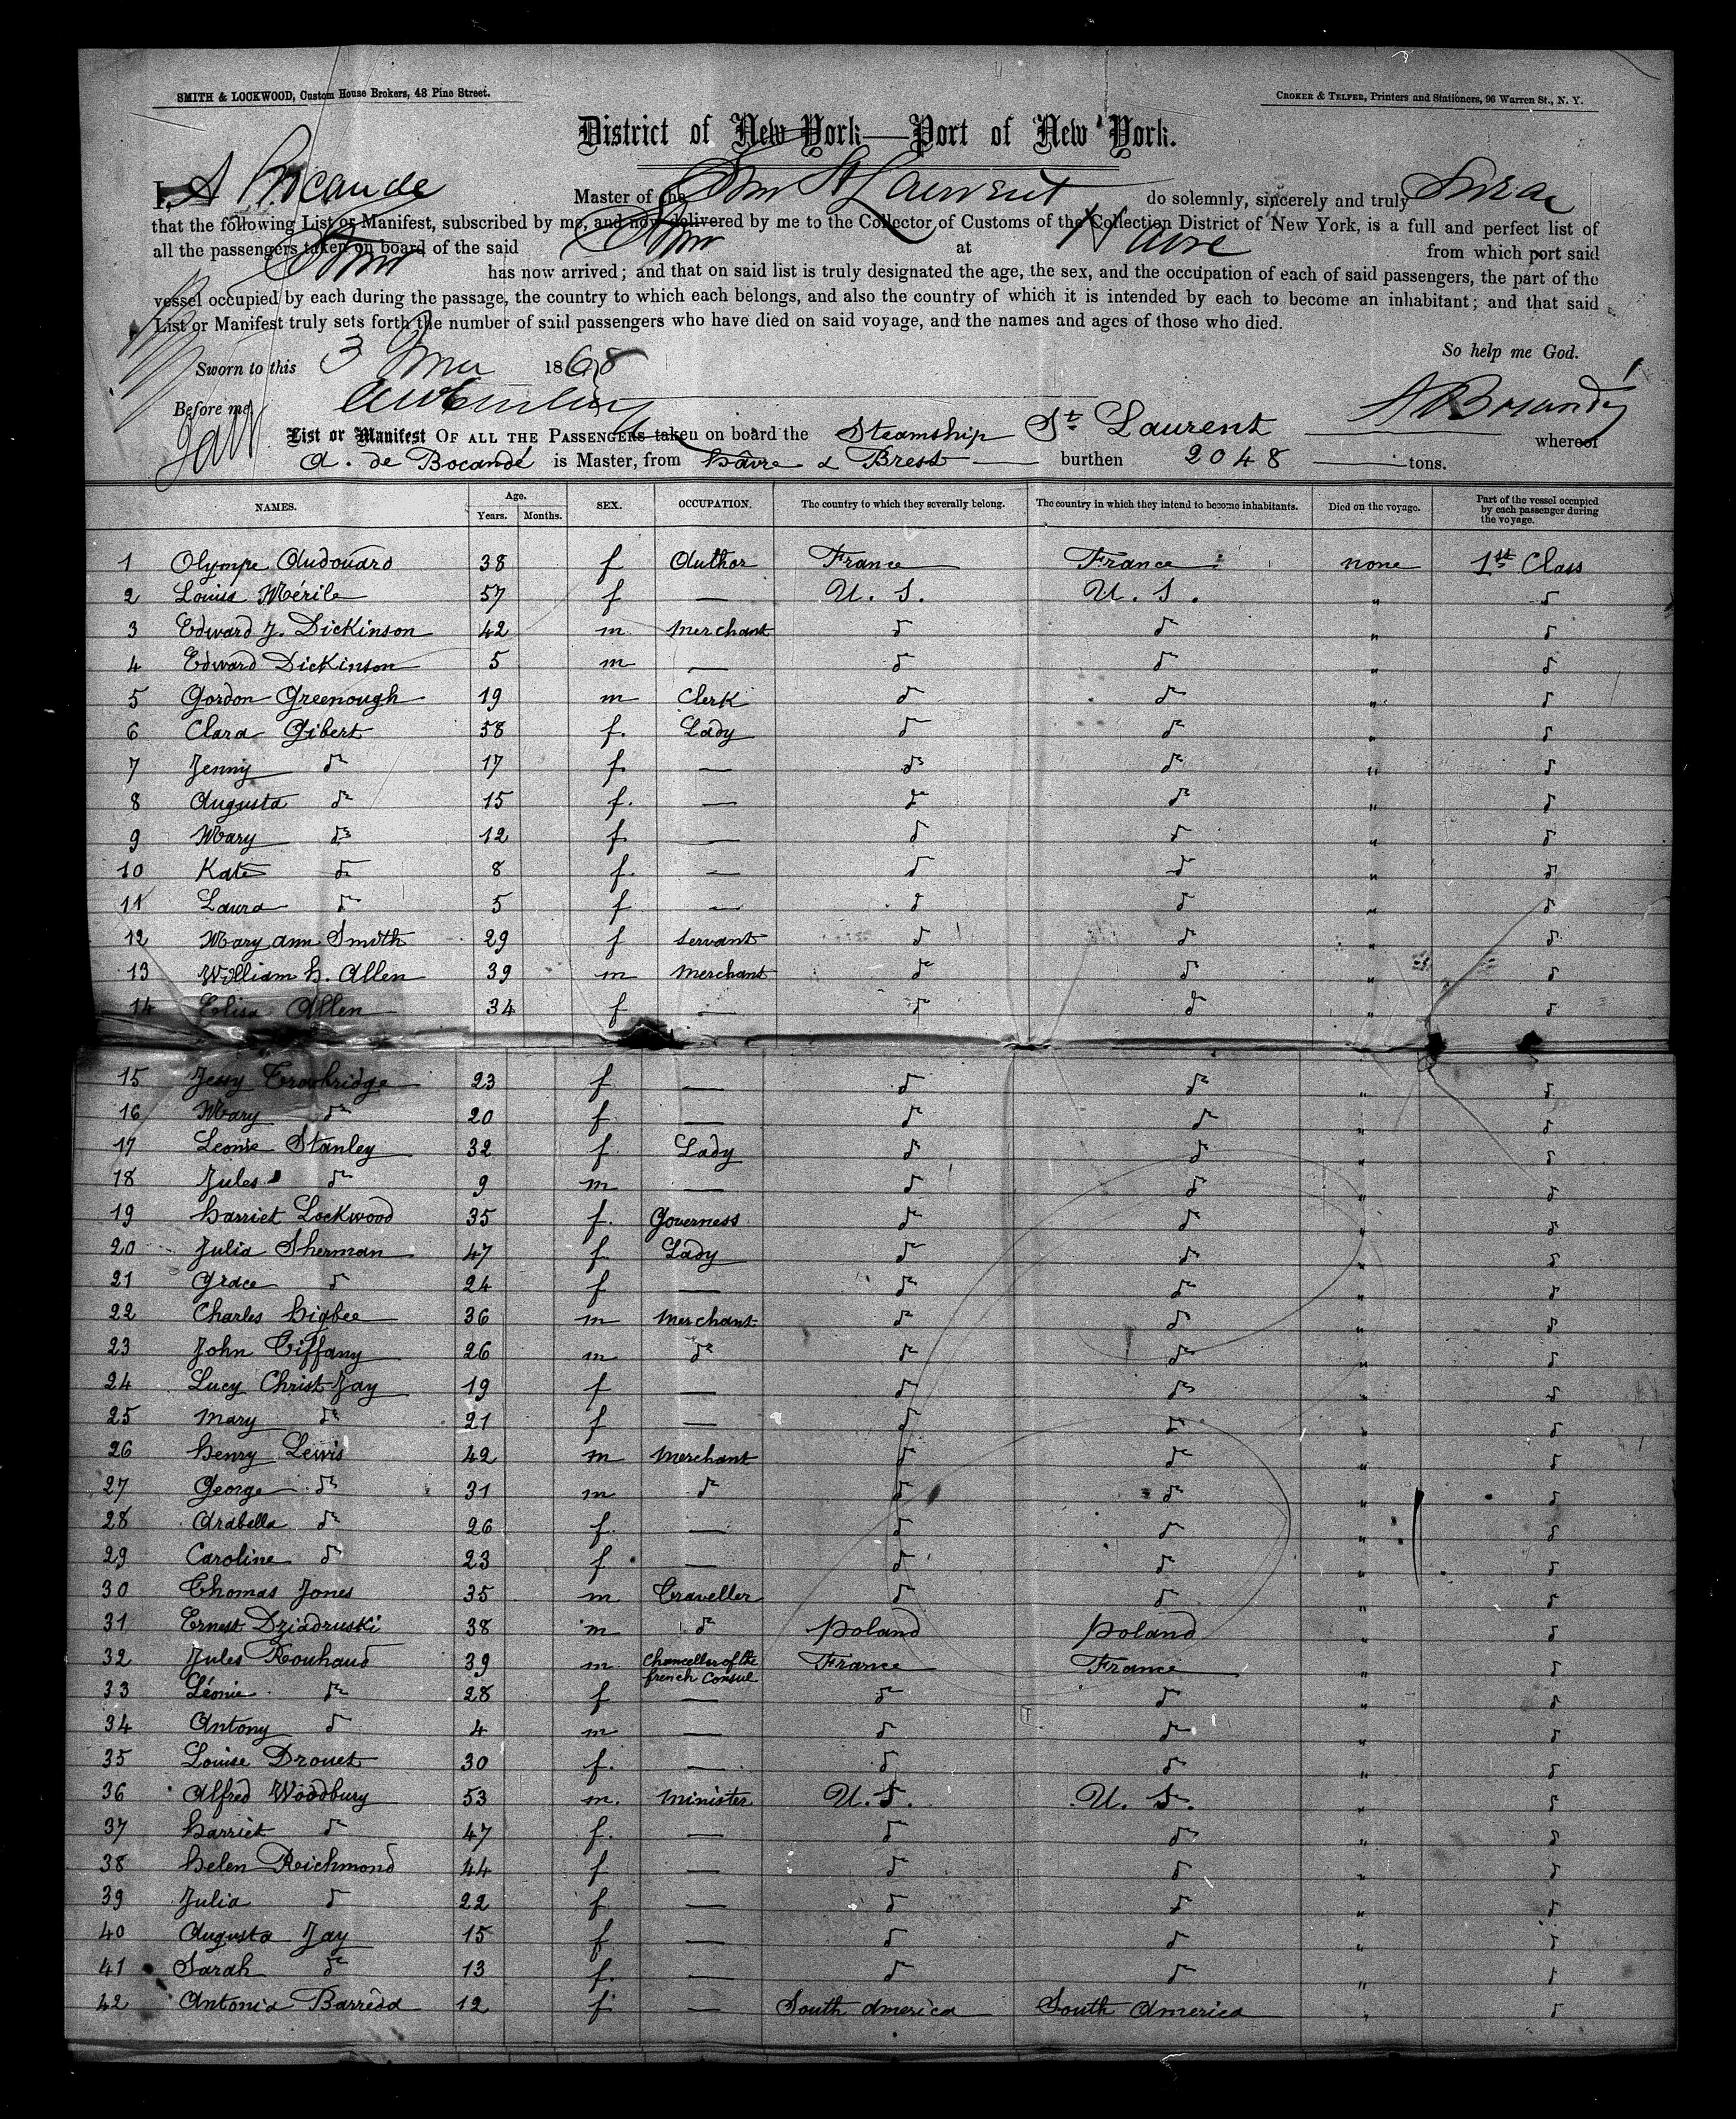 SMITH & LOCKWOOD, Custom House Brokers, 48 Pine Street.
CROKER & TELFER, Printers and Stationers, 96 Warren St., N. Y.
District of New York—Port of New York.
I, A Bocande Master of the Stmr St Laurent do solemnly, sincerely and truly Swear
that the following List or Manifest, subscribed by me, and now delivered by me to the Collector of Customs of the Collection District of New York, is a full and perfect list of
all the passengers taken on board of the said Stmr at Havre from which port said
Stmr has now arrived; and that on said list is truly designated the age, the sex, and the occupation of each of said passengers, the part of the
vessel occupied by each during the passage, the country to which each belongs, and also the country of which it is intended by each to become an inhabitant; and that said
List or Manifest truly sets forth the number of said passengers who have died on said voyage, and the names and ages of those who died.
So help me God.
Sworn to this 3 1868
Before me,
List or Manifest OF ALL THE PASSENGERS taken on board the Steamship St Laurent whereof
A. de Bocandé is Master, from Hâvre & Brest burthen 2048 tons.
NAMES. Age. Years. Months. SEX. OCCUPATION. The country to which they severally belong. The country in which they intend to become inhabitants. Died on the voyage. Part of the vessel occupied by each passenger during the voyage.
1 Olympe Audouard 38 f Author France France none 1st Class
2 Louis Mérile 57 f — U. S. U. S. " do
3 Edward J. Dickinson 42 m merchant do do " do
4 Edward Dickinson 5 m — do do " do
5 Gordon Greenough 19 m Clerk do do " do
6 Clara Gibert 58 f. Lady do do " do
7 Jenny do 17 f. — do do " do
8 Augusta do 15 f. — do do " do
9 Mary do 12 f. — do do " do
10 Kate do 8 f. — do do " do
11 Laura do 5 f — do do " do
12 Mary ann Smith 29 f servant do do " do
13 William H. Allen 39 m merchant do do " do
14 Elisa Allen 34 f — do do " do
15 Jessy Trowbridge 23 f — do do " do
16 Mary do 20 f — do do " do
17 Leonie Stanley 32 f Lady do do " do
18 Jules do 9 m — do do " do
19 Harriet Lockwood 35 f. Governess do do " do
20 Julia Sherman 47 f Lady do do " do
21 Grace do 24 f — do do " do
22 Charles Higbee 36 m merchant do do " do
23 John Tiffany 26 m do do do " do
24 Lucy Christ Jay 19 f — do do " do
25 Mary do 21 f — do do " do
26 Henry Lewis 42 m merchant do do " do
27 George do 31 m do do do " do
28 Arabella do 26 f. — do do " do
29 Caroline do 23 f — do do " do
30 Thomas Jones 35 m Traveller do do " do
31 Ernest Dziadruski 38 m do Poland Poland " do
32 Jules Rouhaud 39 m Chancellor of the french Consul France France " do
33 Léonie do 28 f — do do " do
34 Antony do 4 m — do do " do
35 Louise Drouet 30 f. — do do " do
36 Alfred Woodbury 53 m. minister U. S. U. S. " do
37 Harriet do 47 f. — do do " do
38 Helen Richmond 44 f — do do " do
39 Julia do 22 f — do do " do
40 Augusta Jay 15 f — do do " do
41 Sarah do 13 f. — do do " do
42 Antonia Barréda 12 f — South America South America " do